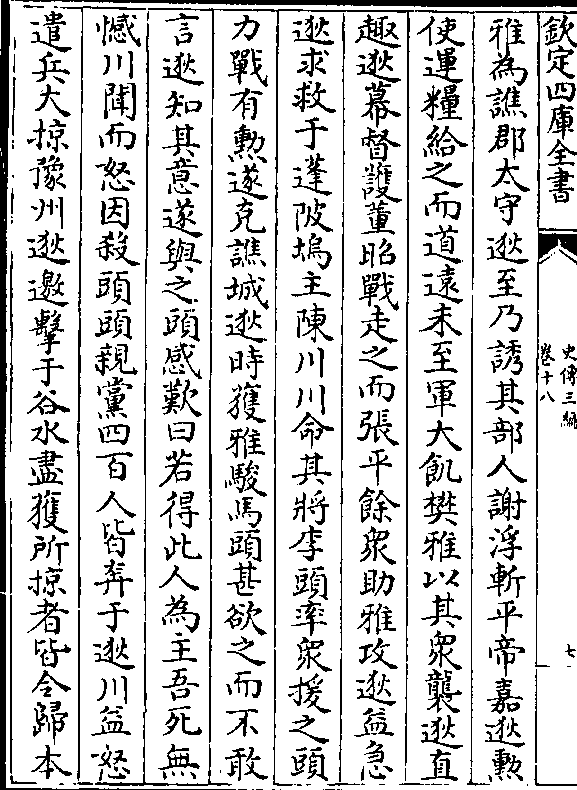 欽定四庫全書
史傳三編
卷十八
七
雅為譙郡太守逖至乃誘其部人謝浮斬平帝嘉逖勲
使運糧給之而道遠未至軍大飢樊雅以其衆襲逖直
趣逖幕督護董昭戰走之而張平餘衆助雅攻逖益急
逖求救于蓬陂塢主陳川川命其將李頭率衆援之頭
力戰有勲遂克譙城逖時獲雅駿馬頭甚欲之而不敢
言逖知其意遂與之頭感歎曰若得此人為主吾死無
憾川聞而怒因殺頭頭親黨四百人皆奔于逖川益怒
遣兵大掠豫州逖邀擊于谷水盡獲所掠者皆令歸本